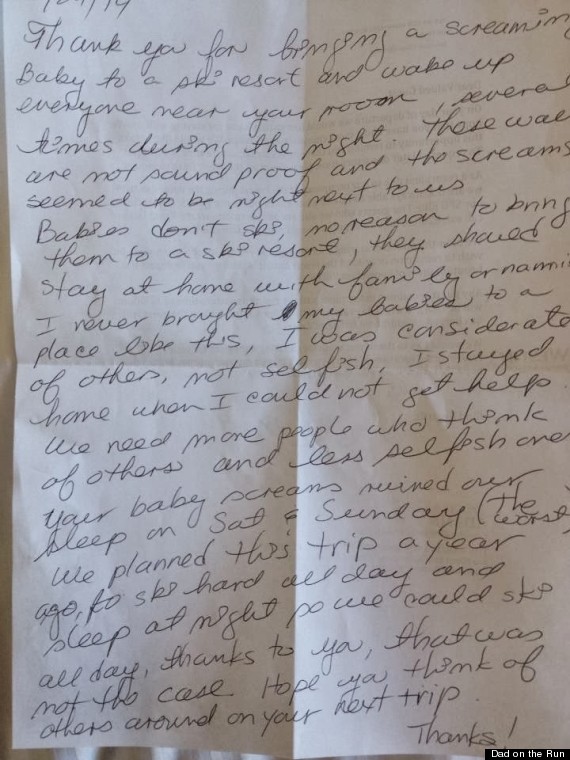 Thank ya for bringing a screaming
Baby to a ski resort and wake up
everyone near your room, several
times during the night. These wal
are not sound proof and the screams
seemed to be right next to us
Babies don't ski, no reason to bring
them to a ski resort, they should
stay at home with family or nanni
I never brought my babies to a
place like this, I was considerate
of others, not selfish, I stayed
home when I could not get help.
We need more people who think
of others and less selfish one
your baby screams ruined our
sleep on Sat & Sunday (the worst
We planned this trip a year
ago, to ski hard all day and
sleep at night so we could ski
all day, thanks to ya, that was
not the case. Hope ya think of
others around on your next trip.
Thanks!
Dad on the Run